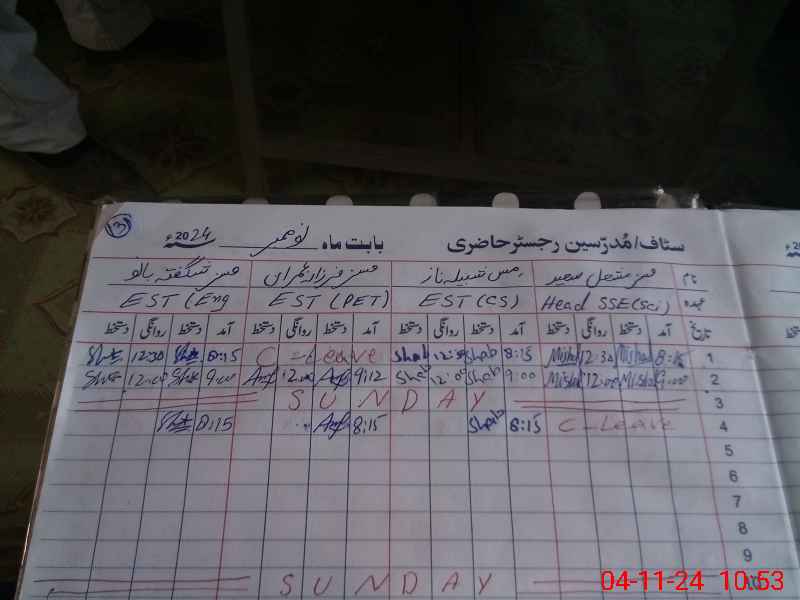 3
سٹاف/مُدرّسین رجسٹر حاضری بابت ماہ نومبر 2024ء
نام مس مشعل سعید مس شبیلہ ناز مس فرزانہ عمران مس شگفتہ بانو
عہدہ Head SSE(Sci) EST (CS) EST (PET) EST (Eng
تاریخ آمد دستخط روانگی دستخط آمد دستخط روانگی دستخط آمد دستخط روانگی دستخط آمد دستخط روانگی دستخط
1 8:15 Mishal 12:30 Mishal 8:15 Shab 12:30 Shab C-Leave 8:15 12:30
2 9:00 Mishal 12:00 Mishal 9:00 Shab 12:00 Shab 9:12 12:00 9:00 12:00
3 SUNDAY
4 C-Leave 8:15 Shab 8:15 8:15
5
6
7
8
9
10 SUNDAY
04-11-24 10:53